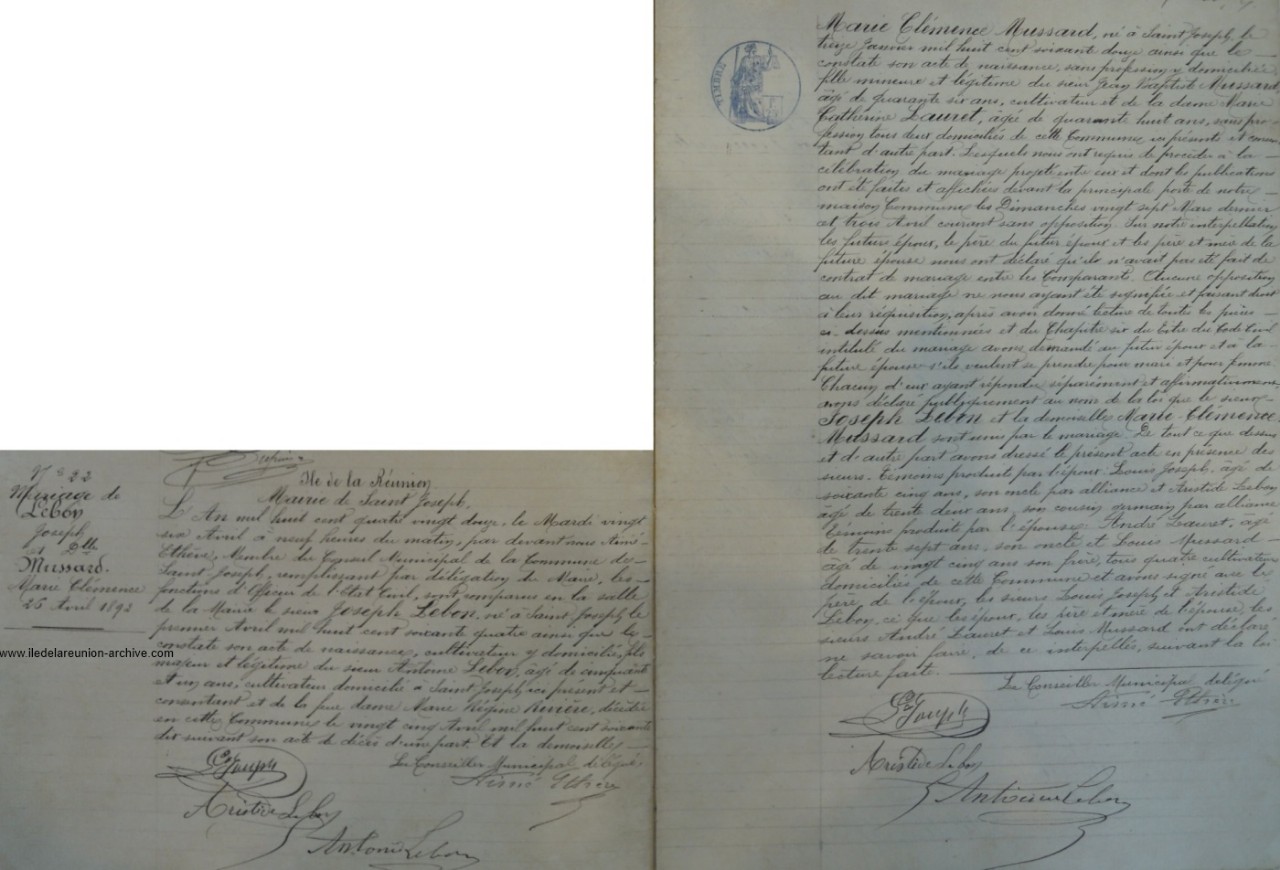 N° 22
Mariage de
Lebon
Joseph
et Dlle
Mussard.
Marie Clémence
26 Avril 1892
www.iledelareunion-archive.com
Ile de la Réunion
Mairie de Saint Joseph,
L'An mil huit cent quatre vingt douze, le Mardi vingt
six Avril à neuf heures du matin, par devant nous Aimé
Ethève, Membre du Conseil Municipal de la Commune de
Saint Joseph, remplissant par délégation du Maire, les
fonctions d'Officier de l'Etat Civil, sont comparus en la salle
de la Mairie le sieur Joseph Lebon, né à Saint Joseph, le
premier Avril mil huit cent soixante quatre ainsi que le
constate son acte de naissance, cultivateur y domicilié, fils
majeur et légitime du sieur Antoine Lebon, âgé de cinquante
et un ans, cultivateur domicilié à Saint Joseph ici présent et
consentant et de la feue dame Marie Régine Rivière, décédée
en cette Commune le vingt cinq Avril mil huit cent soixante
dix suivant son acte de décès d'une part. Et la demoiselle
Le Conseiller Municipal délégué,
Aimé Ethève
Ls Joseph
Aristide Lebon
Antoine Lebon
TIMBRE
Marie Clémence Mussard, né à Saint Joseph, le
treize Janvier mil huit cent soixante douze ainsi que le
constate son acte de naissance, sans profession y domiciliée,
fille mineure et légitime du sieur Jean Baptiste Mussard,
âgé de quarante six ans, cultivateur et de la dame Marie
Catherine Lauret, âgée de quarante huit ans, sans pro-
fession tous deux domiciliés de cette Commune ici présents et consen-
tant d'autre part. Lesquels nous ont requis de procéder à la
célébration du mariage projeté entre eux et dont les publications
ont été faites et affichées devant la principale porte de notre
maison Commune les Dimanches vingt sept Mars dernier
et trois Avril courant sans opposition. Sur notre interpellation
les futurs époux, le père du futur époux et les père et mère de la
future épouse nous ont déclaré qu'il n'avait pas été fait de
contrat de mariage entre les Comparants. Aucune opposition
au dit mariage ne nous ayant été signifiée et faisant droit
à leur réquisition, après avoir donné lecture de toutes les pièces
ci-dessus mentionnées et du Chapitre six du titre du Code Civil
intitulé du mariage avons demandé au futur époux et à la
future épouse s'ils veulent se prendre pour mari et pour femme.
Chacun d'eux ayant répondu séparément et affirmativement
avons déclaré publiquement au nom de la loi que le sieur
Joseph Lebon et la demoiselle Marie Clémence
Mussard sont unis par le mariage. De tout ce que dessus
et d'autre part avons dressé le présent acte en présence des
sieurs. Témoins produits par l'époux: Louis Joseph, âgé de
soixante cinq ans, son oncle par alliance et Aristide Lebon
âgé de trente deux ans, son cousin germain par alliance
Témoins produit par l'épouse: André Lauret, âgé
de trente sept ans, son oncle et Louis Mussard
âgé de vingt cinq ans son frère, tous quatre cultivateurs
domiciliés de cette Commune et avons signé avec le
père de l'époux, les sieurs Louis Joseph et Aristide
Lebon, ce que les époux, les père et mère de l'épouse, les
sieurs André Lauret et Louis Mussard ont déclaré
ne savoir faire, de ce interpellés, suivant la loi
lecture faite.
Le Conseiller Municipal délégué
Aimé Ethève
Ls Joseph
Aristide Lebon
Antoine Lebon